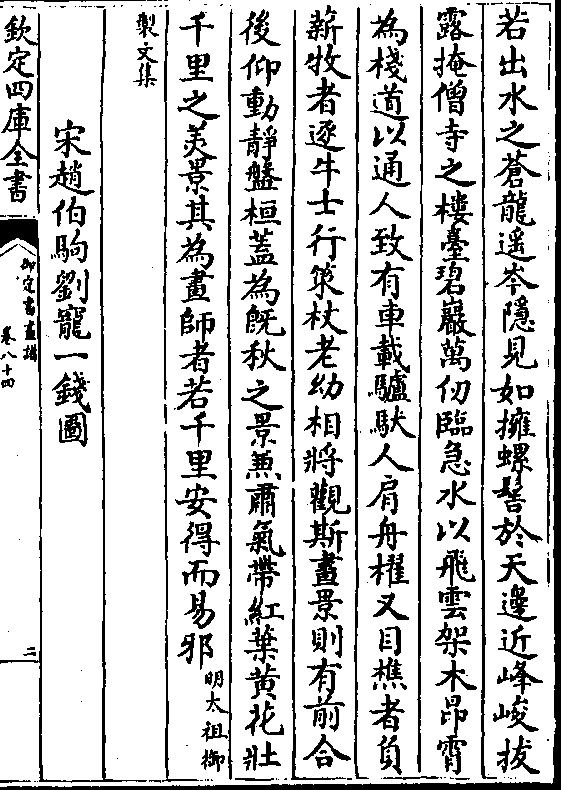 若出水之蒼龍遥岑隱見如擁螺髻於天邊近峰峻拔
露掩僧寺之樓臺碧巖萬仞臨急水以飛雲架木昂霄
為棧道以通人致有車載驢馱人肩舟櫂又目樵者負
薪牧者逐牛士行策杖老幼相將觀斯畫景則有前合
後仰動靜盤桓蓋為旣秋之景兼肅氣帶紅葉黄花壯
千里之美景其為畫師者若千里安得而易邪 明太祖御
製文集
宋趙伯駒劉寵一錢圖
欽定四庫全書
御定書畫譜
卷八十四
二